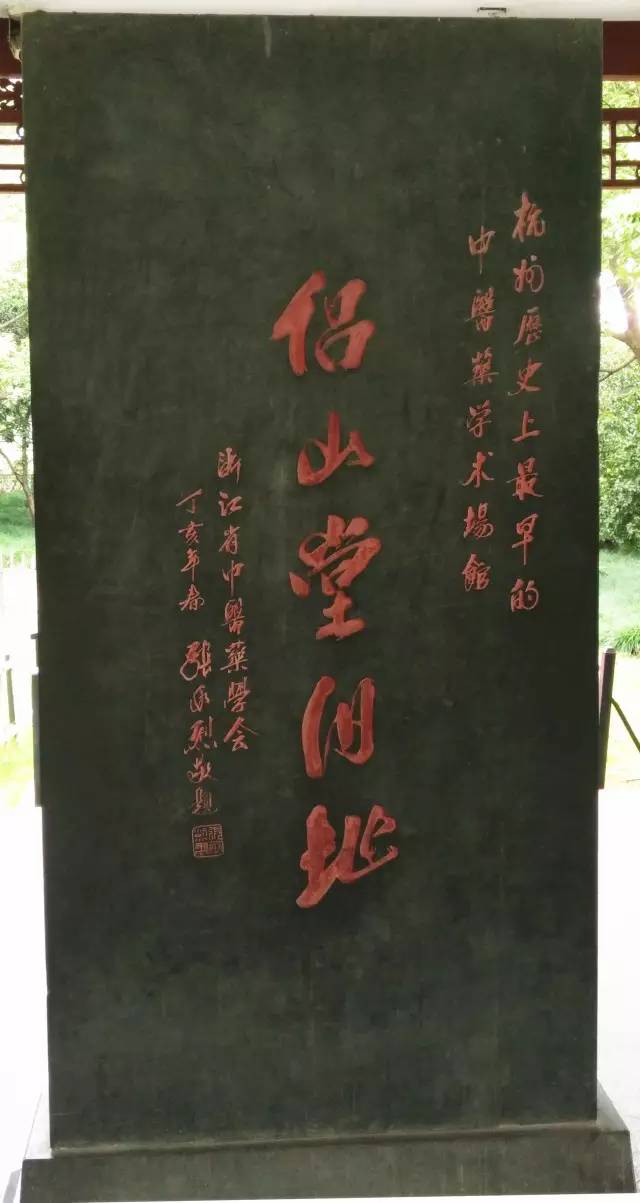 杭州歷史上最早的
中醫藥学术場館
侣山堂旧址
浙江省中醫藥學会
丁亥年春 張承烈敬題